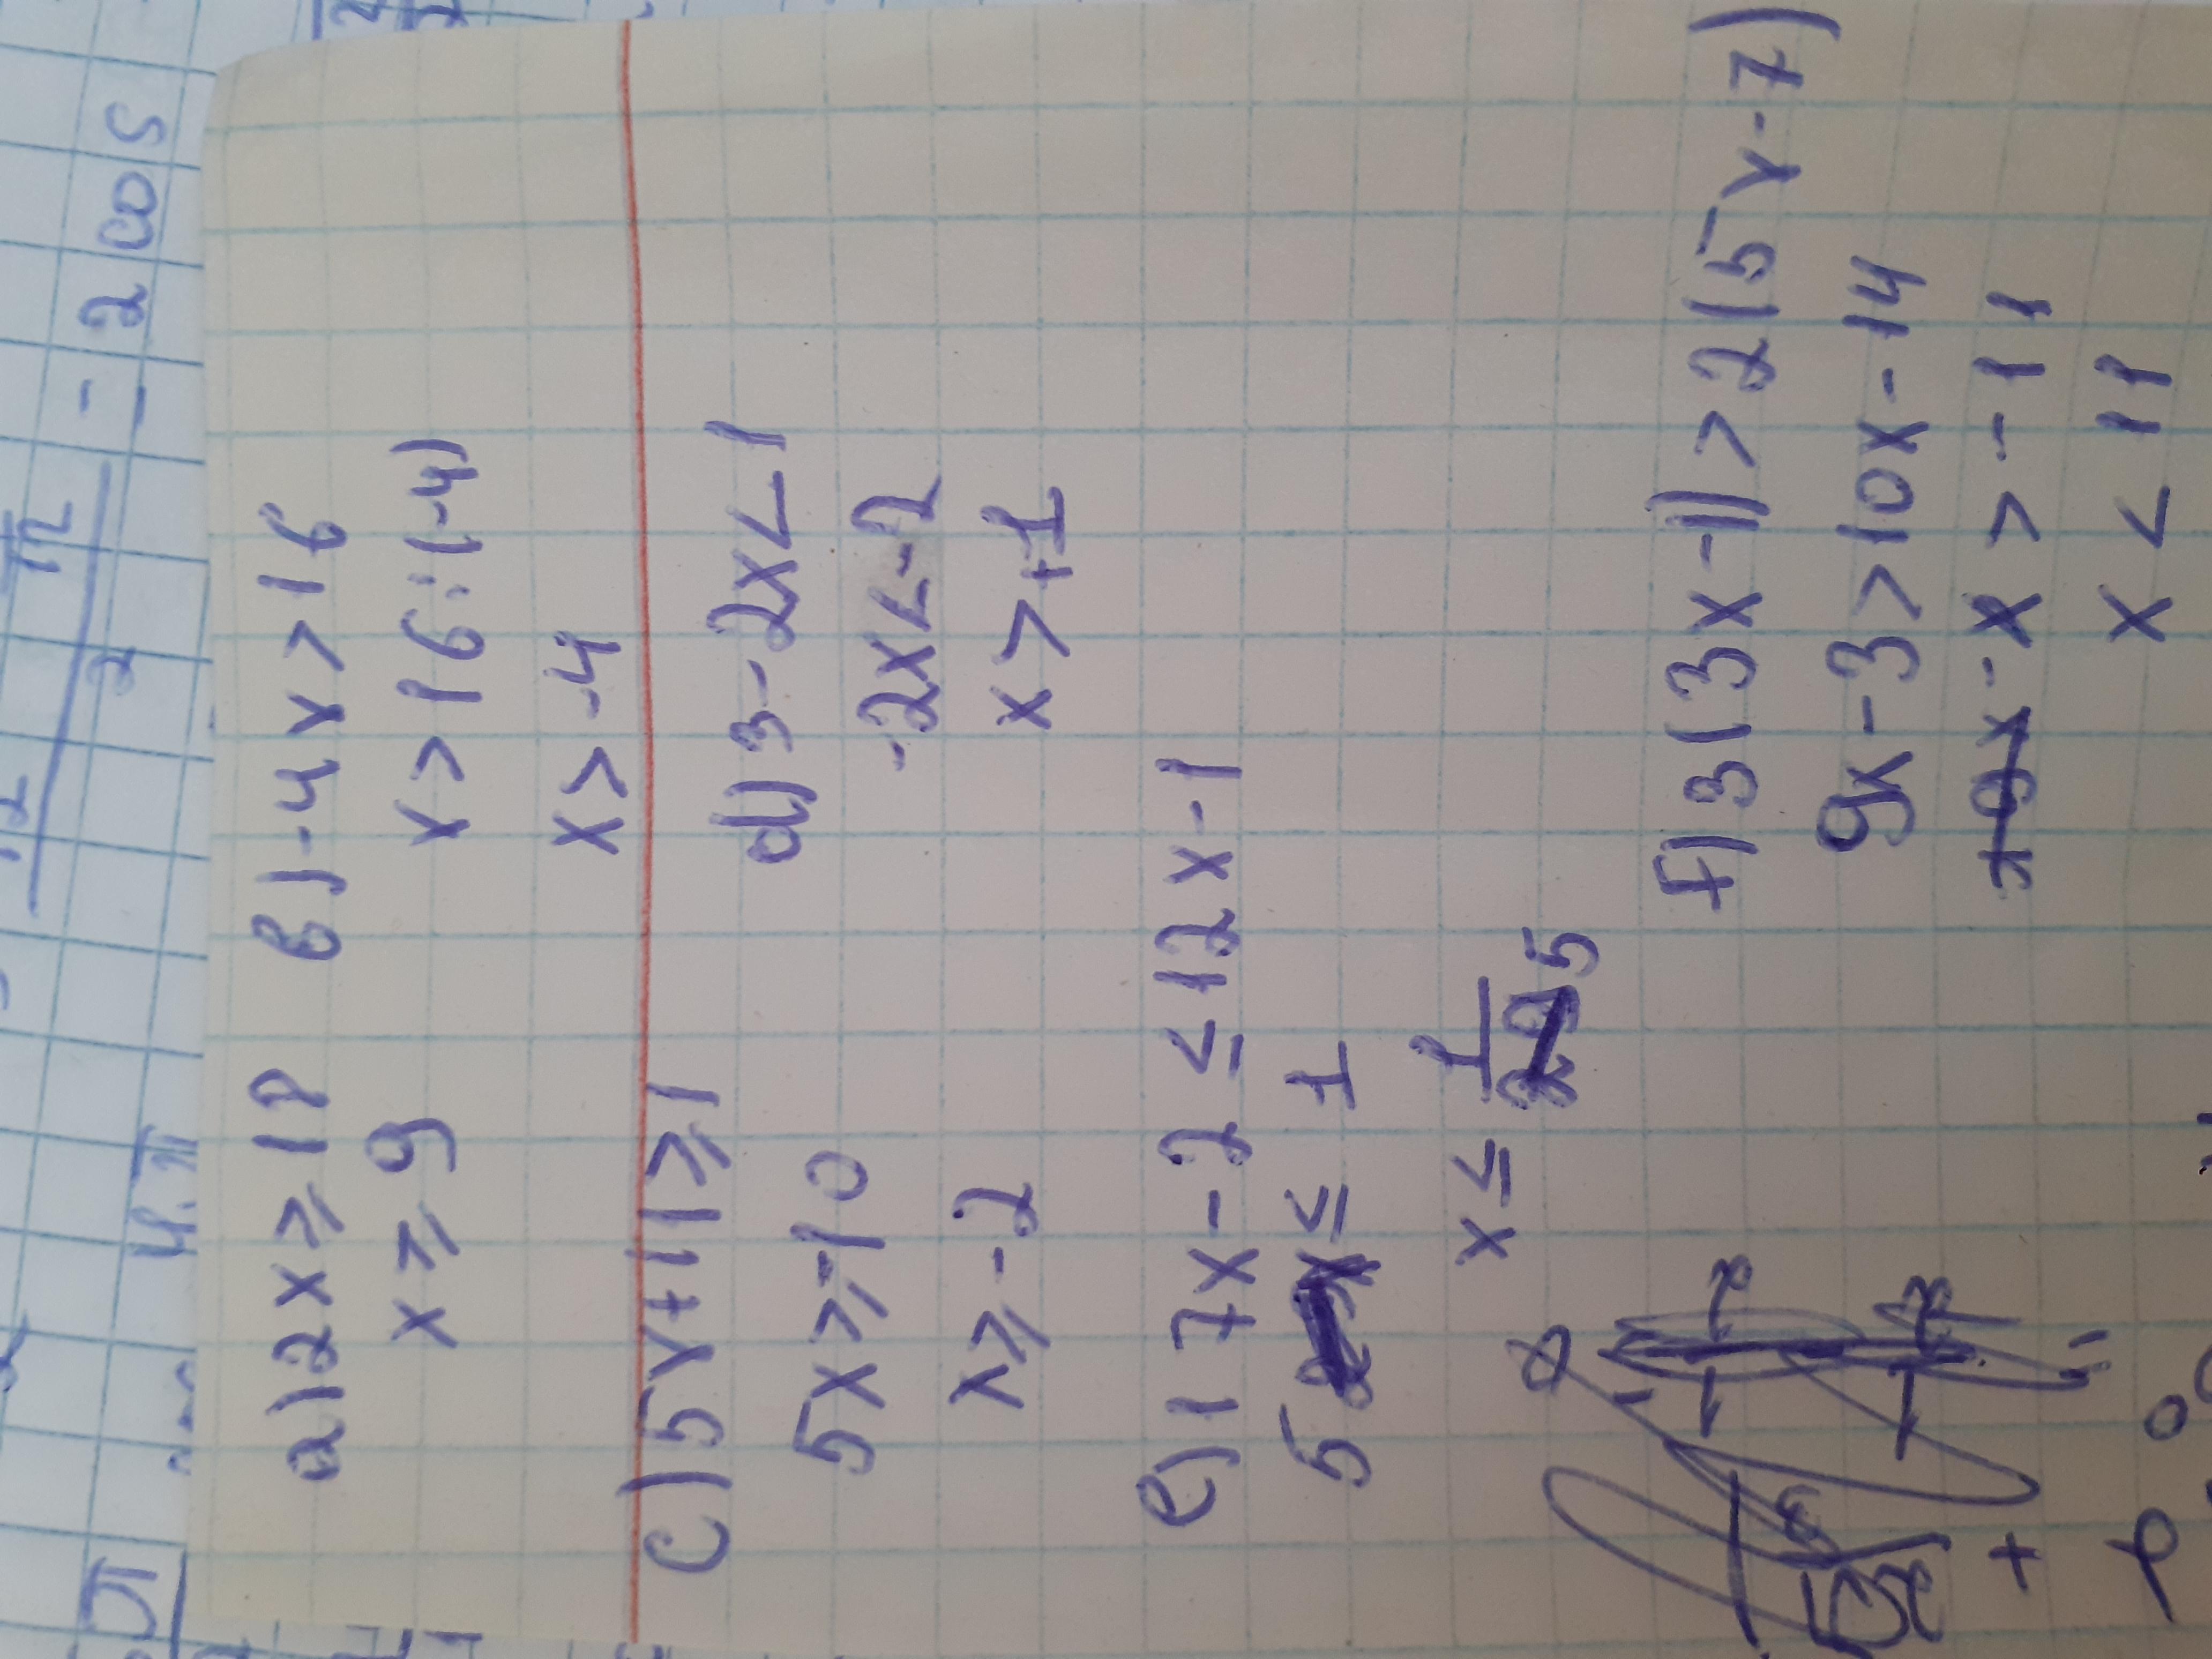 π
2
- 2 cos
4π
a) 2x ≥ 18
x ≥ 9
b) -4x > 16
x > 16 : (-4)
x > -4
c) 5x + 11 ≥ 1
5x ≥ -10
x ≥ -2
d) 3 - 2x < 1
-2x < -2
x > +1
e) 17x - 2 ≤ 12x - 1
5x ≤ 1
x ≤ 1/5
f) 3(3x - 1) > 2(5x - 7)
9x - 3 > 10x - 14
-x > -11
x < 11